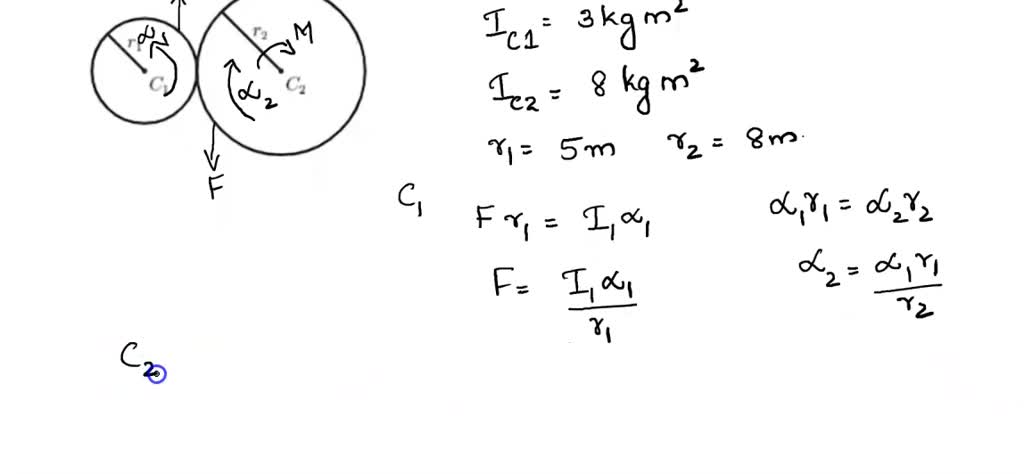 r₁ α₁ C₁
r₂ M
α₂ C₂
F
I_C1 = 3 kg m²
I_C2 = 8 kg m²
r₁ = 5m r₂ = 8m
C₁ F r₁ = I₁α₁ α₁r₁ = α₂r₂
F = I₁α₁/r₁ α₂ = α₁r₁/r₂
C₂